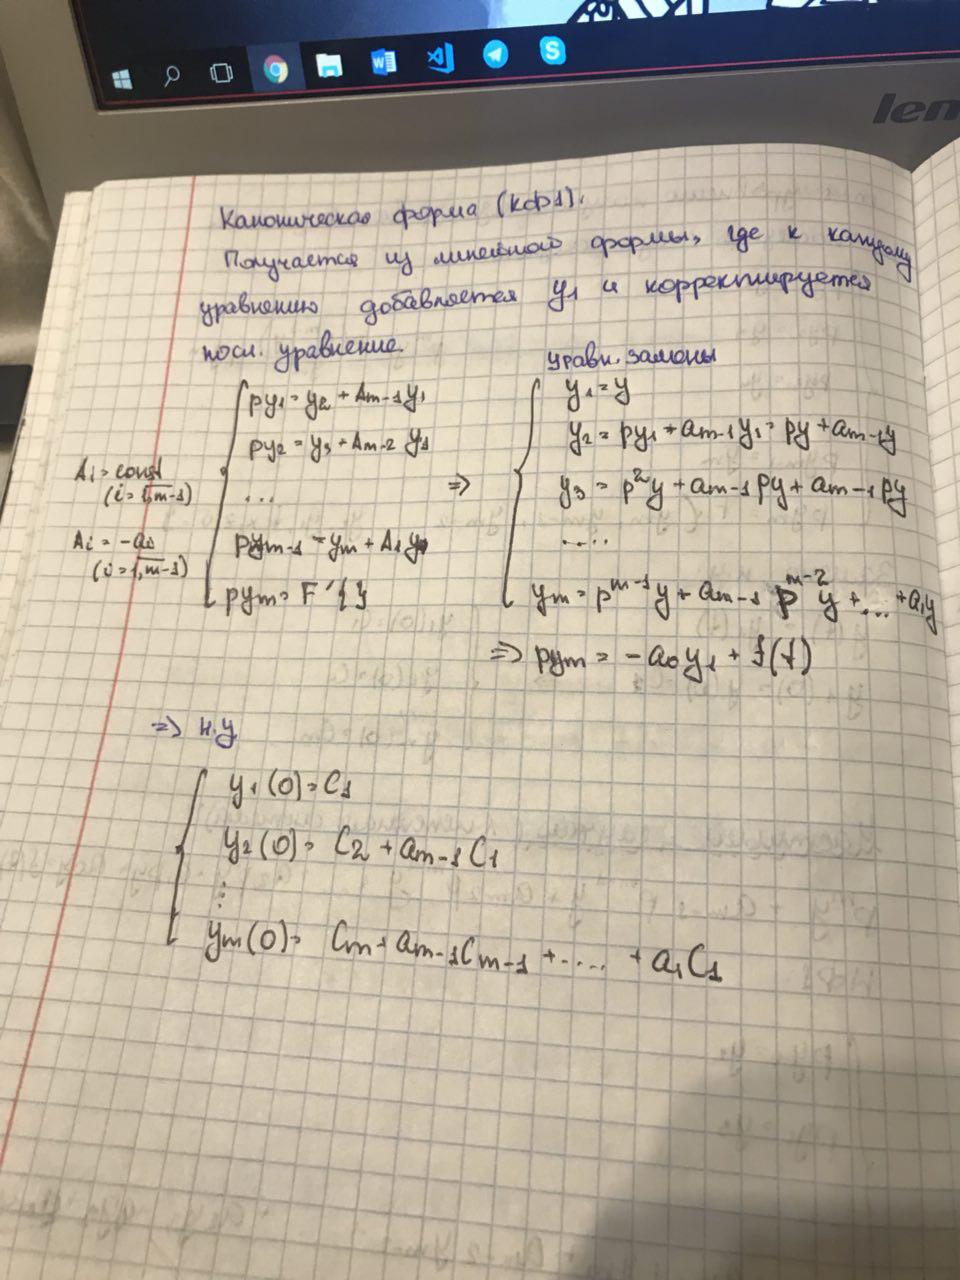 len
Каноническая форма (КФ1).
Получается из линейной формы, где к каждому
уравнению добавляется y₁ и корректируется
посл. уравнение.
уравн. замены
py₁ = y₂ + Am-1 y₁
py₂ = y₃ + Am-2 y₁
...
pym-1 = ym + A₁y
pym = F'{}
Ai = const
(i = 1,m-1)
Ai = -ai
(i = 1,m-1)
=>
y₁ = y
y₂ = py₁ + am-1 y₁ = py + am-1y
y₃ = p²y + am-1 py + am-1 py
.....
ym = pᵐ⁻¹y + am-1 pᵐ⁻²y + ... + a₁y
=> pym = -a₀y₁ + f(t)
=> н.у
y₁(0) = C₁
y₂(0) = C₂ + am-1 C₁
⋮
ym(0) = Cm + am-1Cm-1 + .... + a₁C₁